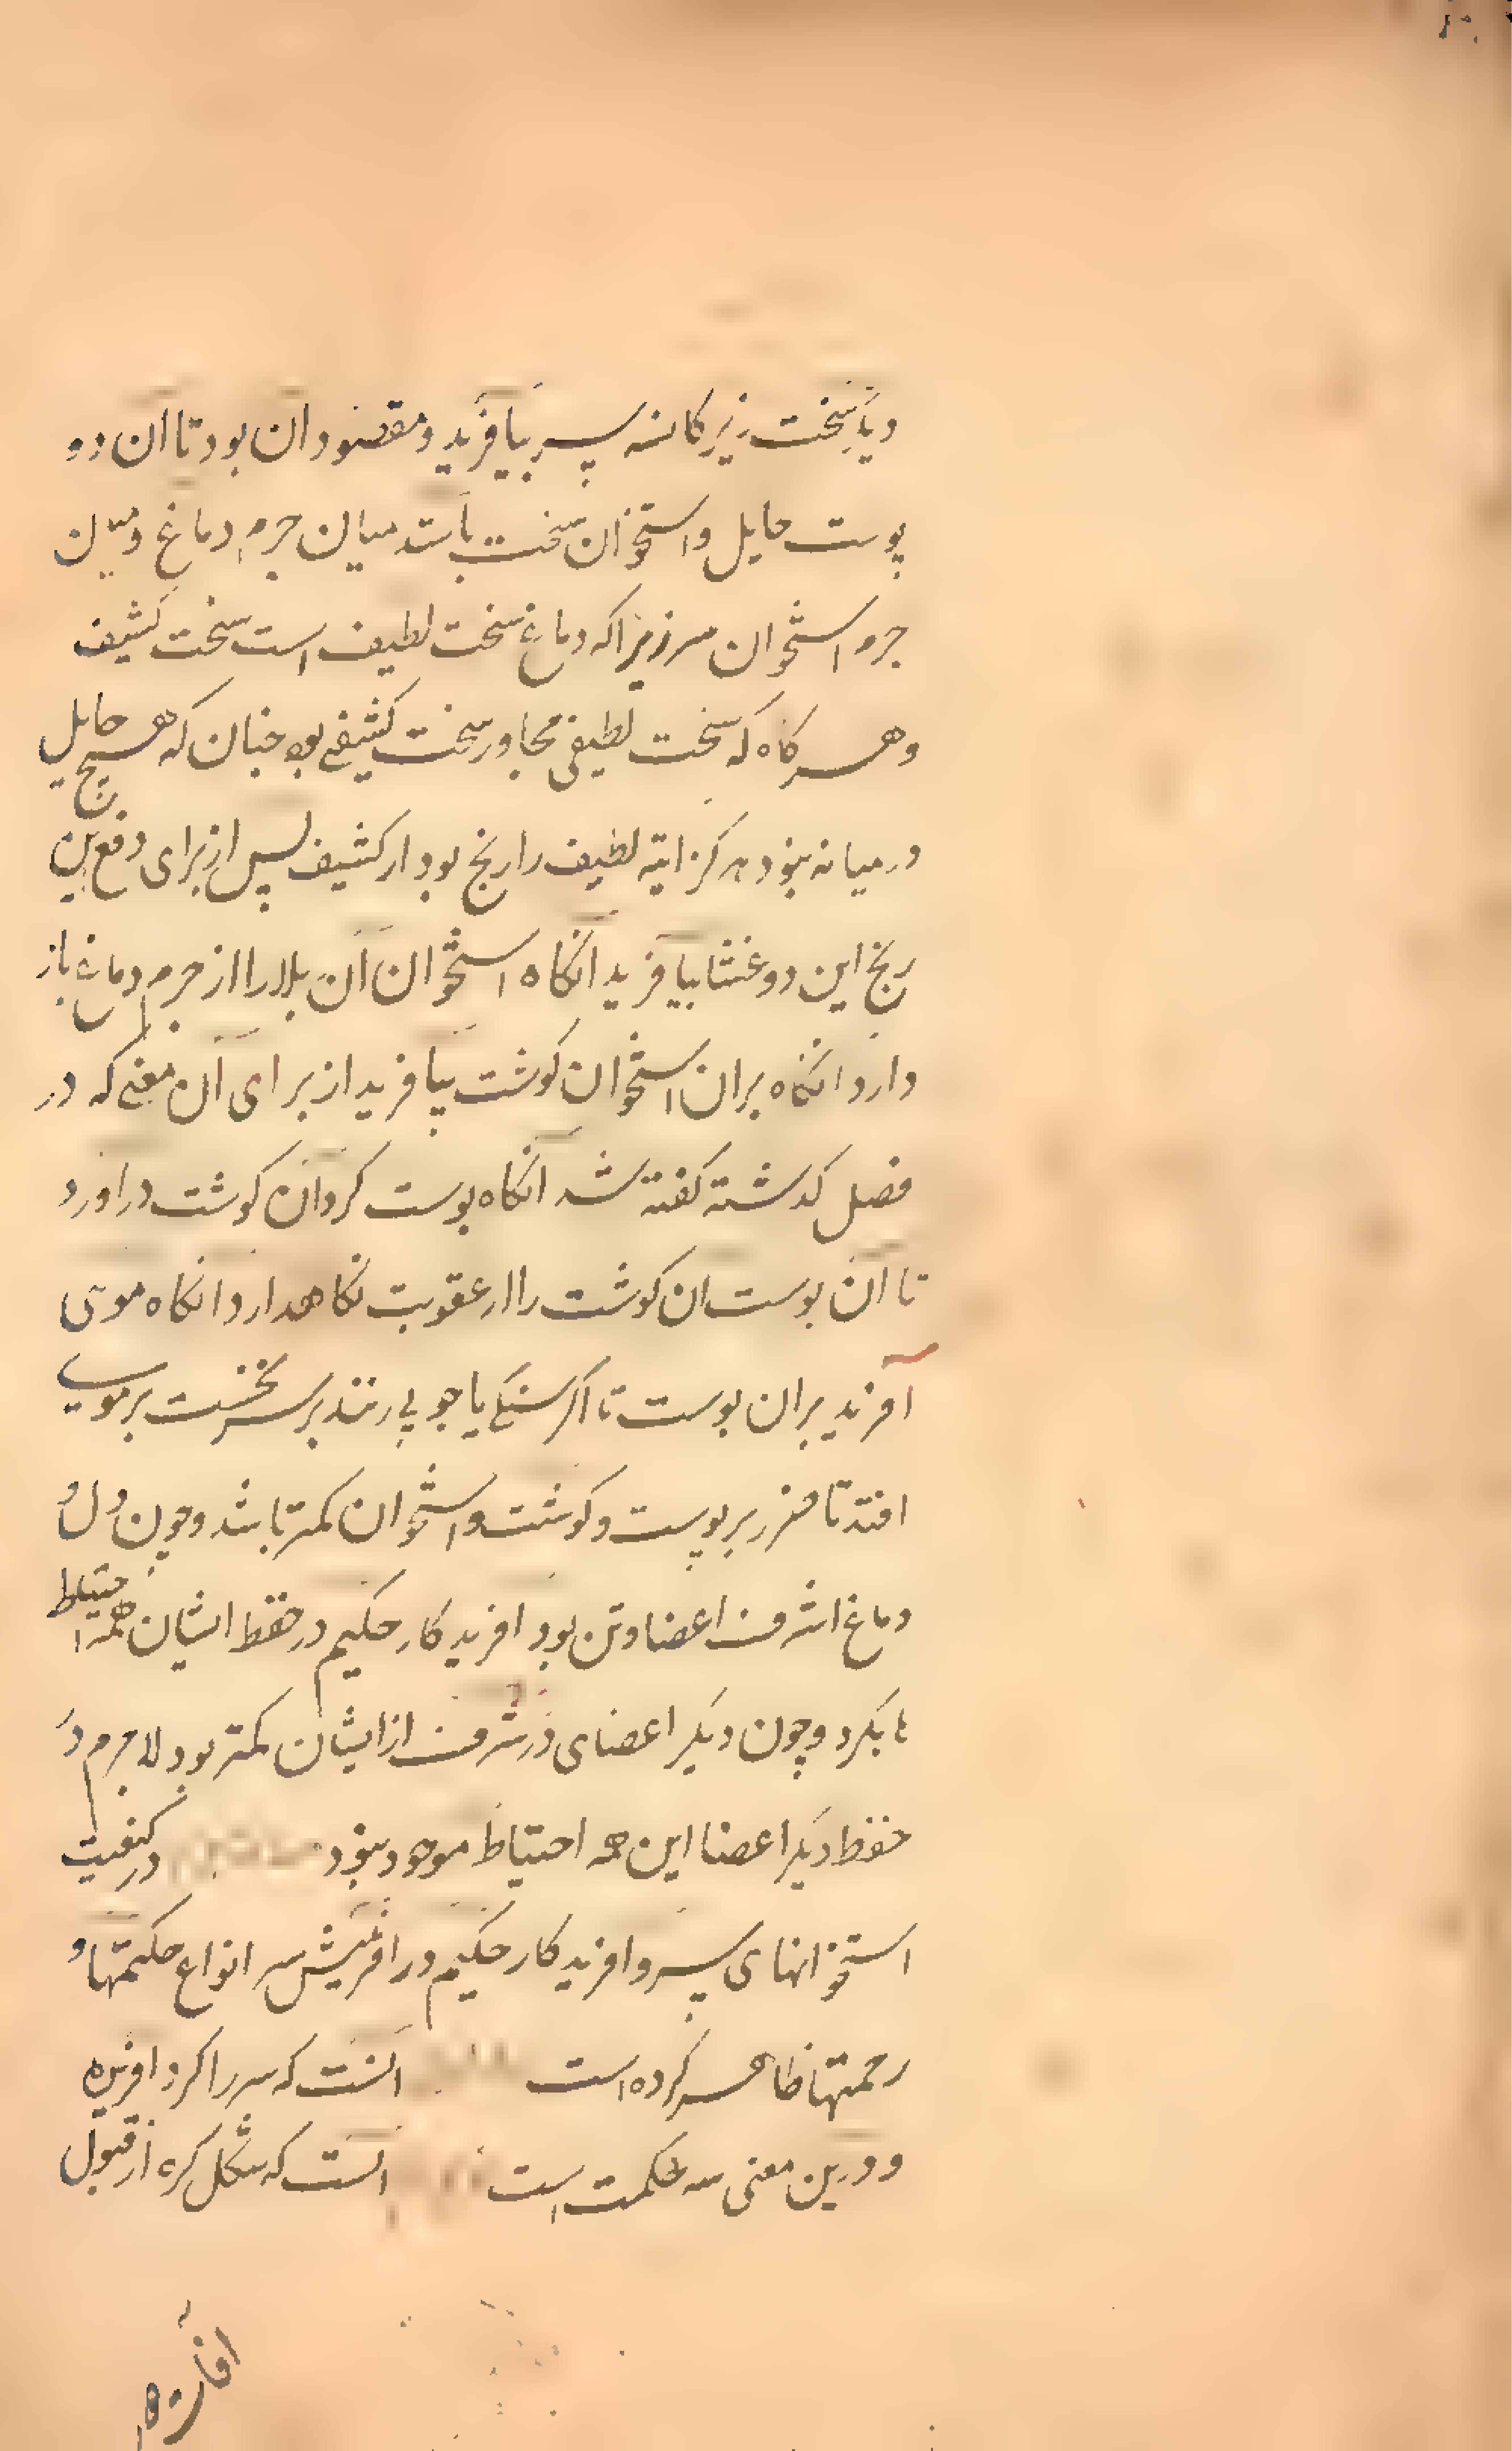 و یا سخت زیر کاسه سر بیافرید و مقصود ان بود تا ان دو
پوست حایل و استخوان سخت باشد میان جرم دماغ و میان
جرم استخوان سر زیرا که دماغ سخت لطیف است سخت کثیف
و هر کاه که سخت لطیفی مجاور سخت کثیفی بود جنان که هیچ حایل
در میانه نبود هر کز اینه لطیف را رنج بود از کثیف پس از برای دفع این
رنج این دو غشا بیافرید انکاه استخوان ان بلا را از جرم دماغ باز
دارد انکاه بران استخوان کوشت بیافرید از برای آن معنی که در
فصل کذشته کفته شد انکاه بوست کرد ان کوشت در اورد
تا ان بوست ان کوشت را از عقوبت نکاهدارد انکاه موی
آفرید بران بوست تا اکر سنکی یا جوبی زنند بر سر نخست بر موی
افتد تا ضرر بر پوست و کوشت و استخوان کمتر باشد و چون دل و
دماغ اشرف اعضا و تن بود افریدکار حکیم در حفظ ایشان همه احتیاط
ها بکرد و چون دیکر اعضای در شرف از ایشان کمتر بود لاجرم در
حفظ دیکر اعضا این همه احتیاط موجود نبود در کیفیت
استخوانهای سر و افریدکار حکیم در افرینش سر انواع حکمتها و
رحمتها ظاهر کرده است انست که سر را کرد افریده
و درین معنی سه حکمت است انست که شکل کره از قبول
افات